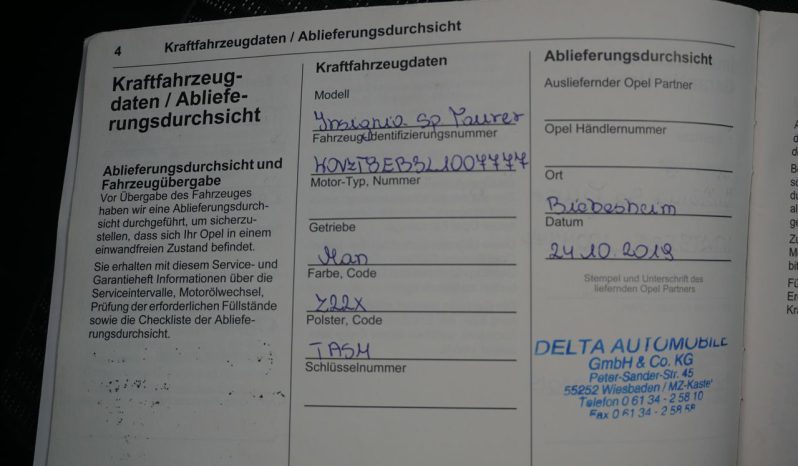 4 Kraftfahrzeugdaten / Ablieferungsdurchsicht
Kraftfahrzeug-
daten / Abliefe-
rungsdurchsicht
Ablieferungsdurchsicht und
Fahrzeugübergabe
Vor Übergabe des Fahrzeuges
haben wir eine Ablieferungsdurch-
sicht durchgeführt, um sicherzu-
stellen, dass sich Ihr Opel in einem
einwandfreien Zustand befindet.
Sie erhalten mit diesem Service- und
Garantieheft Informationen über die
Serviceintervalle, Motorölwechsel,
Prüfung der erforderlichen Füllstände
sowie die Checkliste der Abliefe-
rungsdurchsicht.
Kraftfahrzeugdaten
Modell
Insignia Sp Tourer
Fahrzeug-Identifizierungsnummer
W0VZT8EB8L1007777
Motor-Typ, Nummer
Getriebe
Man
Farbe, Code
Z22X
Polster, Code
TASM
Schlüsselnummer
Ablieferungsdurchsicht
Ausliefernder Opel Partner
Opel Händlernummer
Ort
Biebesheim
Datum
24.10.2019
Stempel und Unterschrift des
liefernden Opel Partners
DELTA AUTOMOBILE
GmbH & Co. KG
Peter-Sander-Str. 45
55252 Wiesbaden / MZ-Kastel
Telefon 0 61 34 - 2 58 10
Fax 0 61 34 - 2 58 58